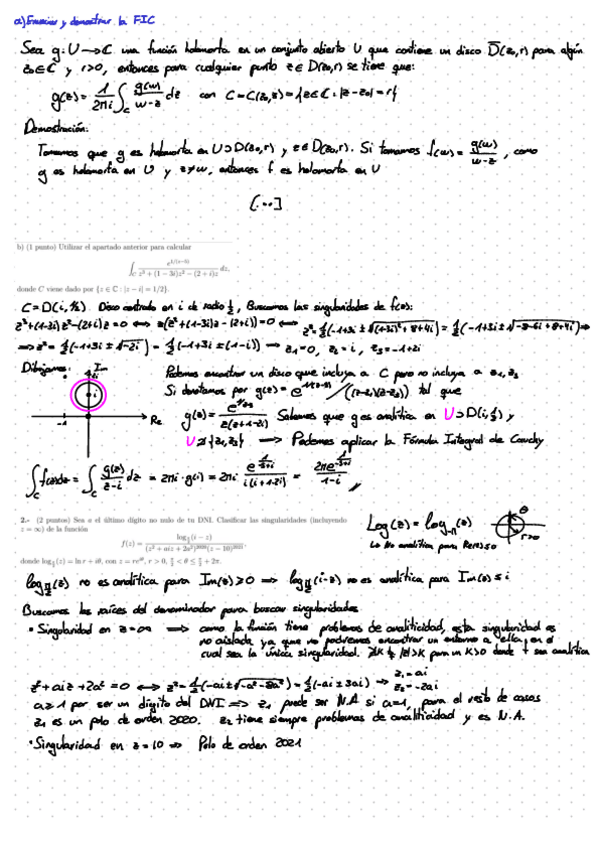 a) Enunciar y demostrar la FIC
Sea g: U → ℂ una función holomorfa en un conjunto abierto U que contiene un disco D̄(z₀,r) para algún
z₀ ∈ ℂ y r>0, entonces para cualquier punto z ∈ D(z₀,r) se tiene que:
g(z) = 1/2πi ∫_C g(w)/(w-z) dz con C = C(z₀,r) = {z ∈ ℂ : |z-z₀| = r}
Demostración:
Tomamos que g es holomorfa en U ⊃ D(z₀,r) y z ∈ D(z₀,r). Si tomamos f(w) = g(w)/(w-z), como
g es holomorfa en U y z≠w, entonces f es holomorfa en U
[...]
b) (1 punto) Utilizar el apartado anterior para calcular
∫_C e^{1/(z-3)} / (z³ + (1-3i)z² - (2+i)z) dz,
donde C viene dado por {z ∈ ℂ : |z - i| = 1/2}.
C = D(i, ½). Disco centrado en i de radio ½. Buscamos las singularidades de f(z):
z³+(1-3i)z²-(2+i)z = 0 ⟺ z(z²+(1-3i)z-(2+i)) = 0 ⟺
Dibujamos:
Im
i
-1
Re
Podemos encontrar un disco que incluya a C pero no incluya a z₁, z₃
Si denotamos por
tal que
Sabemos que g es analítica en U ⊃ D(i,½) y
⟹ Podemos aplicar la Fórmula Integral de Cauchy
∫_C f(z)dz = ∫_C g(z)/(z-i) dz = 2πi · g(i) =
2.- (2 puntos) Sea a el último dígito no nulo de tu DNI. Clasificar las singularidades (incluyendo
z = ∞) de la función
f(z) = log_{π/2}(i - z) / ((z² + aiz + 2a²)²⁰²⁰(z - 10)²⁰²¹),
donde log_{π/2}(z) = ln r + iθ, con z = re^{iθ}, r > 0, π/2 < θ ≤ π/2 + 2π.
Log(z) = log_{-π}(z)
θ
r>0
↳ No analítica para Re z ≤ 0
log_{π/2}(z) no es analítica para Im(z) ≥ 0 ⟹ log_{π/2}(i-z) no es analítica para Im(z) ≤ i
Buscamos las raíces del denominador para buscar singularidades
• Singularidad en z=∞ ⟹ como la función tiene problemas de analiticidad, esta singularidad es
no aislada ya que no podremos encontrar un entorno a ella, en el
cual sea la única singularidad.
para un K>0 donde f sea analítica
z²+aiz+2a² = 0 ⟺ z = ½(-ai±√(-a²-8a²)) = ½(-ai±3ai) ⟹ z₁ = ai
z₂ = -2ai
a≥1 por ser un dígito del DNI ⟹ z₁ puede ser N.A si a=1, para el resto de casos
z₁ es un polo de orden 2020. z₂ tiene siempre problemas de analiticidad y es N.A.
• Singularidad en z=10 ⟹ Polo de orden 2021